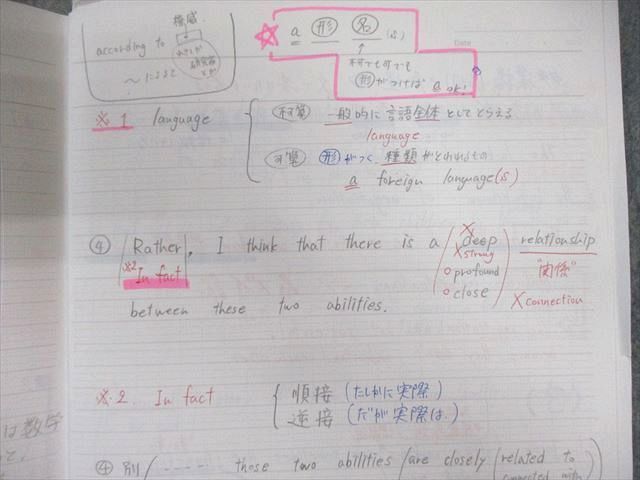 according to 権威
〜によると
a 形 名 (s)
↑
不可でも可でも
形がつけば a ok!
Date
※1 language
不可算 一般的に言語全体としてとらえる
language
可算 形がつく、種類がとわれるもの
a foreign language(s)
④ Rather, I think that there is a ×deep relationship
※2 In fact ×strong "関係"
○profound
○close ×connection
between these two abilities.
※2. In fact
順接 (たしかに実際)
逆接 (だが実際は)
は数学
④ 別 ( ---- those two abilities are closely related to
connected with